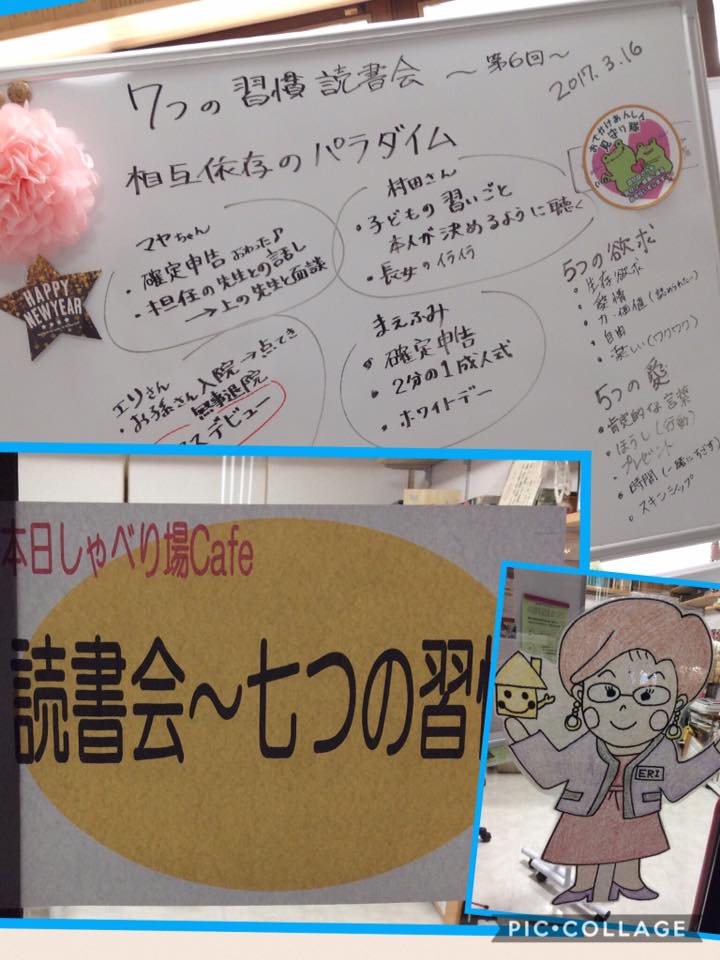 7つの習慣 読書会 〜第6回〜
2017.3.16
相互依存のパラダイム
マヤちゃん
・確定申告 おわった♪
・担任の先生との話し
→上の先生と面談
村田さん
・子どもの習いごと
本人が決めるように聴く
・長女のイライラ
エリさん
・お孫さん入院→点てき
無事退院
デビュー
まえふみ
・確定申告
・2分の1成人式
・ホワイトデー
おでかけあんしん
見守り隊
5つの欲求
・生存欲求
・愛情
・力・価値(認められたい)
・自由
・楽しい(ワクワク)
5つの愛
・肯定的な言葉
・ほうし(行動)
・プレゼント
・時間(一緒にすごす)
・スキンシップ
HAPPY
NEW YEAR
本日しゃべり場Cafe
読書会〜七つの習
ERI
PIC•COLLAGE